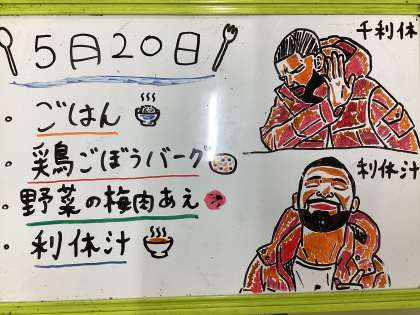 5月20日
千利休
・ごはん
・彩鳥ごぼうバーグ
・野菜の梅肉あえ
・利休汁
利休汁